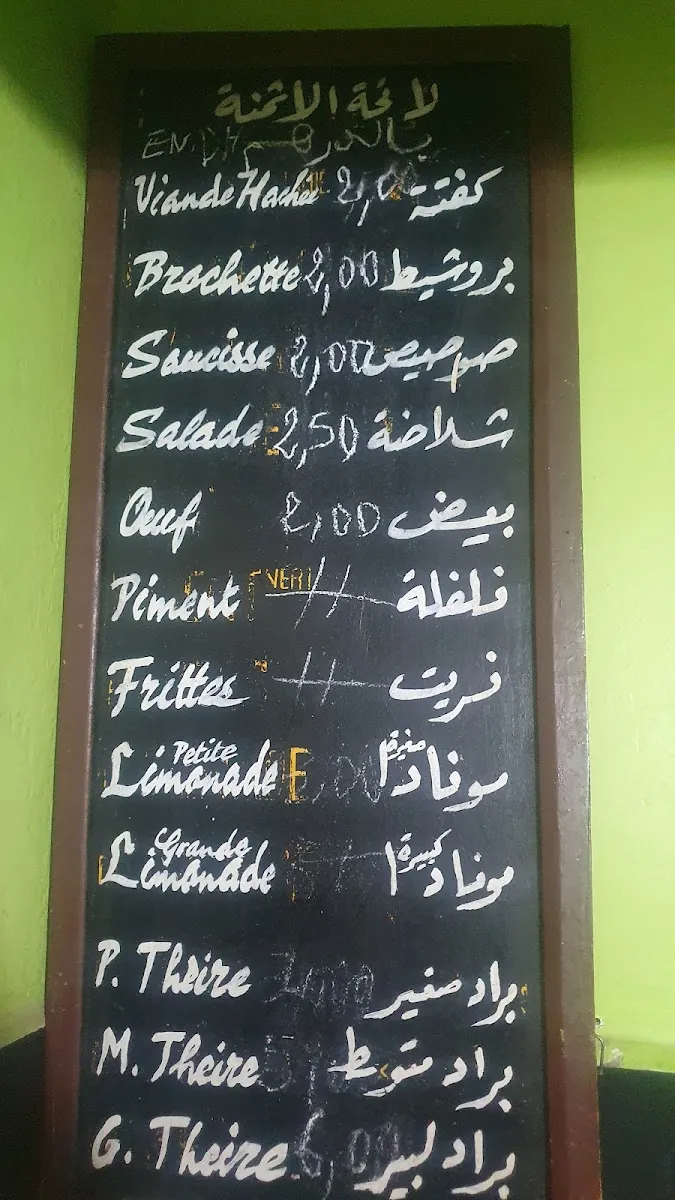 لائحة الاثمنة
EN.DH بالدرهم
Viande Hachée 2,00 كفتة
Brochette 2,00 بروشيط
Saucisse 2,00 صوصيص
Salade 2,50 شلاضة
Oeuf 2,00 بيض
Piment VERT فلفلة
Frittes فريت
Petite Limonade موناضا صغيرة
Grande Limonade موناضا كبيرة
P. Theire براد صغير
M. Theire براد متوسط
G. Theire 6,00 براد كبير